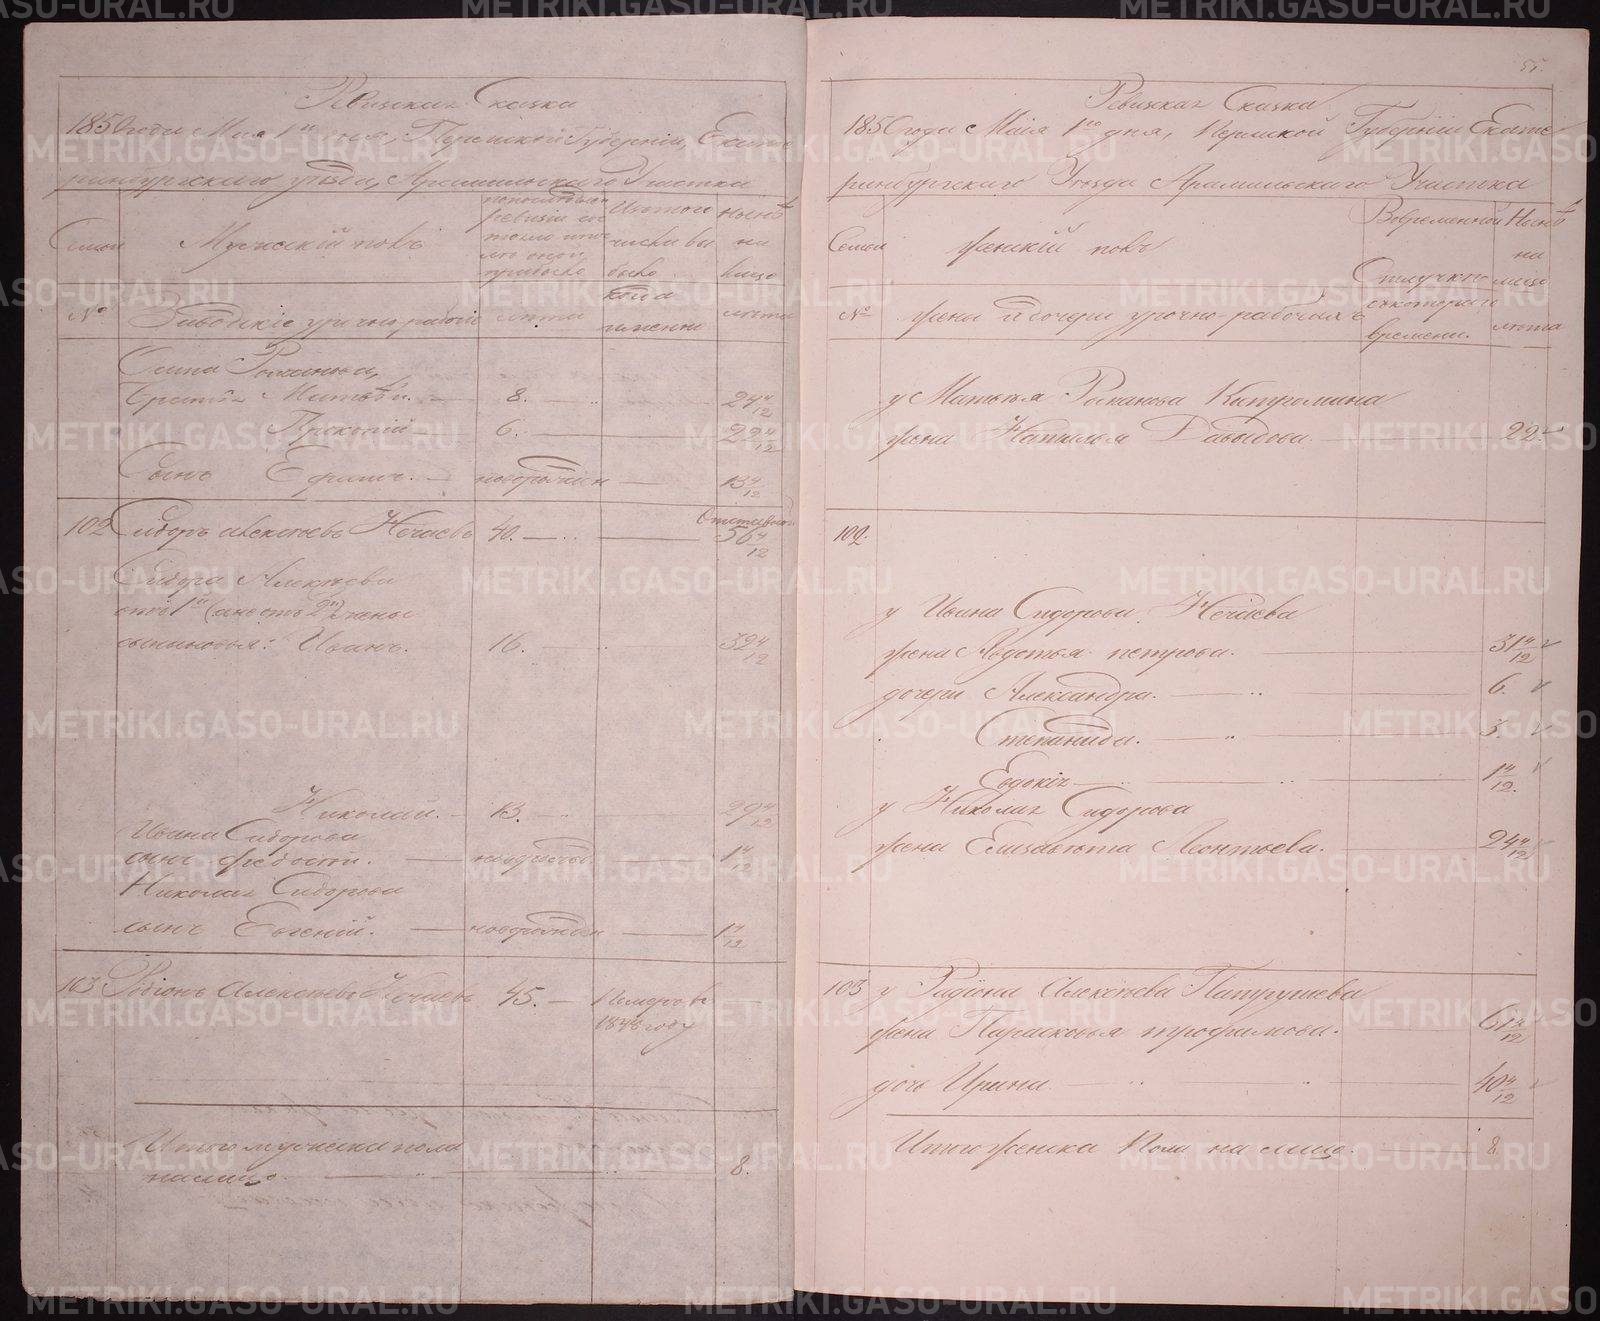 Ревизская Сказка
1850 года Маія 1го дня, Пермской Губерніи, Екате
ринбургскаго уѣзда, Арамильскаго Участка
Семьи
№
Мужескій полъ
Заводскіе урочно рабочіе
по последней
ревизіи со
стояло и по
слѣ оной
прибыло
лѣты
Изъ того
числа вы
было
когда
именно
Нынѣ
на
лицо
лѣта
Романова,
братья Матвѣй. 8. 24 4/12
Прокопій 6. 22 4/12
Сынъ Ефимъ. новорожден 1 3 4/12
102 Сидоръ Алексѣевъ Нечаевъ 40. Отставной 56 4/12
Сидора Алексѣева
отъ 1й (а не отъ 2й) жены
сыновья: Иванъ. 16. 32 4/12
Николай. 13. 29 4/12
Ивана Сидорова
сынъ новорожден. 1 4/12
Николая Сидорова
сынъ Евгеній. новорожден 1 4/12
103 Родіонъ Алексѣевъ Нечаевъ 45. Померъ въ
1848 году
Итого мужеска пола
на лицо. 8.
55.
Ревизская Сказка
1850 года Маія 1го дня, Пермской Губерніи Екате
ринбургскаго Уѣзда Арамильскаго Участка
Семьи
№
Женскій полъ
Жены и дочери урочно-рабочихъ
Во временной
Отлучкѣ
съ котораго
времени.
Нынѣ
на
лицо
лѣта
у Матвѣя Романова
жена Наталья Давыдова 22.
102.
у Ивана Сидорова Нечаева
жена Авдотья петрова. 31 4/12
дочери Александра. 6.
Степанида. 3.
Евдокія 1 4/12.
у Николая Сидорова
жена Елизавѣта Леонтьева. 24 4/12
103 у Радіона Алексѣева
жена Парасковья трофимова. 61 4/12
дочь Ирина 40 4/12
Итого женска Пола на лицо. 8.
METRIKI.GASO-URAL.RU